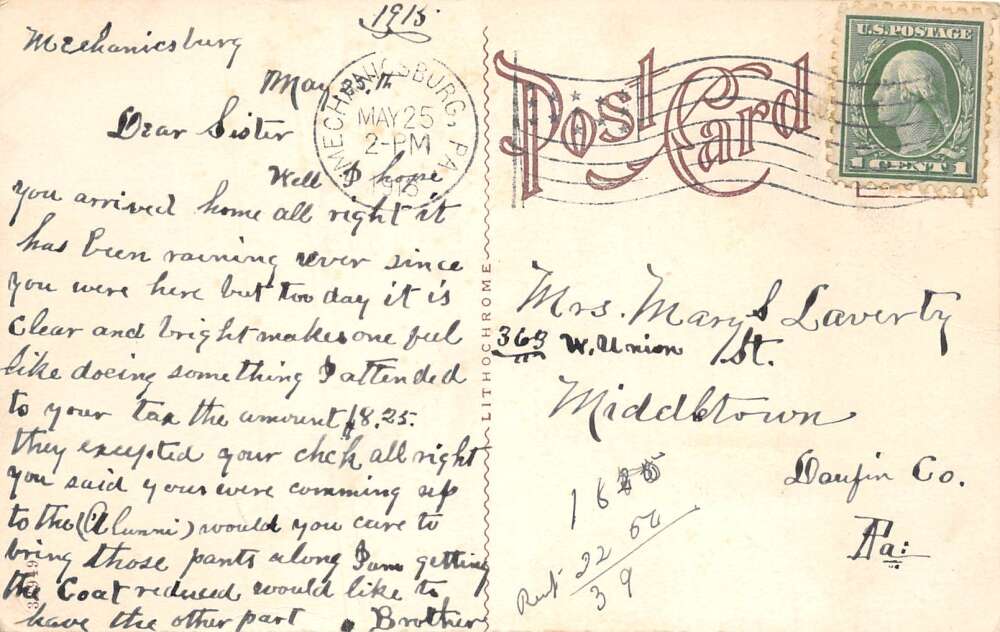 1915
Mechanicsburg
May 25. th
Dear Sister
Well I hope
you arrived home all right it
has been raining ever since
you were here but too day it is
Clear and bright makes one feel
like doeing something I attended
to your tax the amount $8.25.
they excepted your chck all right
you said yous were comming up
to the (Alunni) would you care to
bring those pants along I am getting
the Coat reduced would like to
have the other part. Brother
MECHANICSBURG, PA.
MAY 25
2-PM
1915
Post Card
U.S. POSTAGE
1 CENT 1
LITHOCHROME
Mrs. Mary S Laverty
363 W. Union St.
Middletown
Daufin Co.
Pa:
16
Rent 22 50
39